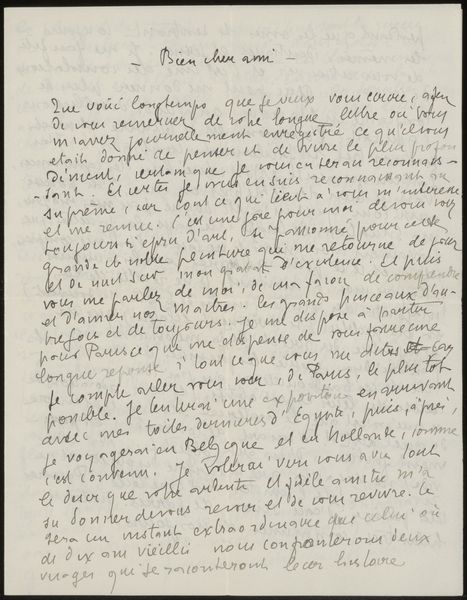 - Bien cher ami -
Que voici longtemps que je veux vous écrire, afin
de vous remercier de votre longue lettre où vous
m'avez journellement enregistré ce qu'il vous
était donné de penser et de vivre le plus profon
dément, certain que je vous en serai reconnais-
-sant. Et certes je vous en suis reconnaissant au
suprême, car tout ce qui tient à vous m'intéresse
et me remue. C'est une joie pour moi de vous voir
toujours si épris d'art, si passionné pour cette
grande et noble peinture qui me retourne de jour
et de nuit sur mon grabat d'existence. Et puis
vous me parlez de moi, de ma façon de comprendre
et d'aimer nos maîtres. Les grands pinceaux d'au-
trefois et de toujours. Je me dispose à partir
pour Paris ce qui me dispense de vous faire une
longue réponse à tout ce que vous me dites Car
je compte aller vous voir, de Paris, le plus tôt
possible. Je ferai une exposition en arrivant
avec mes toiles dernières d'Egypte, puis, après,
je voyagerai en Belgique et en Hollande, comme
c'est convenu. Je volerai vers vous avec tout
le désir que votre ardente et fidèle amitié m'a
su donner de vous revoir et de vous revivre. Ce
sera un instant extraordinaire que celui où
de dix ans vieillis nous confronterons deux
visages qui se raconteront leur histoire